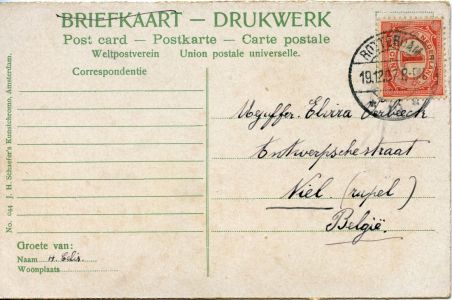 BRIEFKAART — DRUKWERK
Post card — Postkarte — Carte postale
Weltpostverein Union postale universelle.
Correspondentie
ROTTERDAM
19.12.07
NEDERLAND
1
Elvira Verbeeck
Antwerpschestraat
Niel (rupel)
België.
No. 044 J. H. Schaefer's Kunstchromo, Amsterdam.
Groete van:
Naam H.
Woonplaats